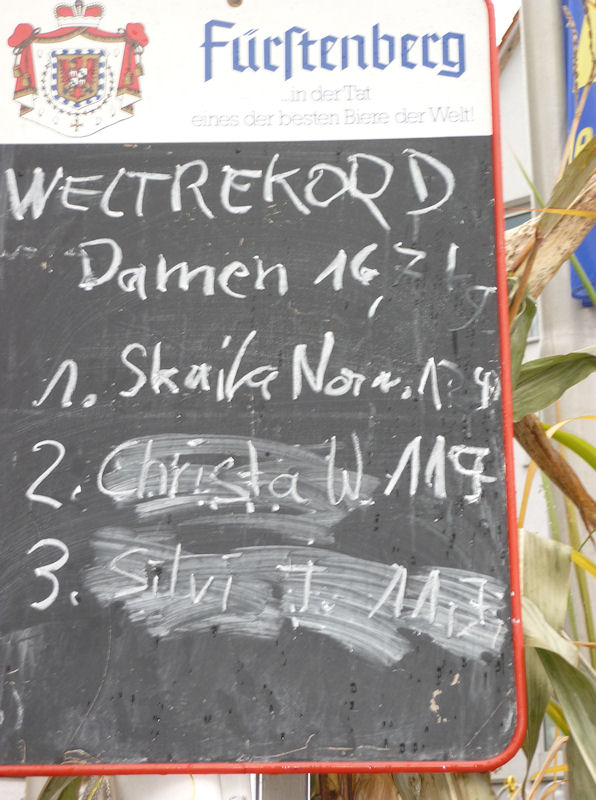 Fürstenberg
...in der Tat
eines der besten Biere der Welt!
WELTREKORD
Damen 16,
1. Norw.
2. Christa W 11,9
3. Silvi J. 11,7